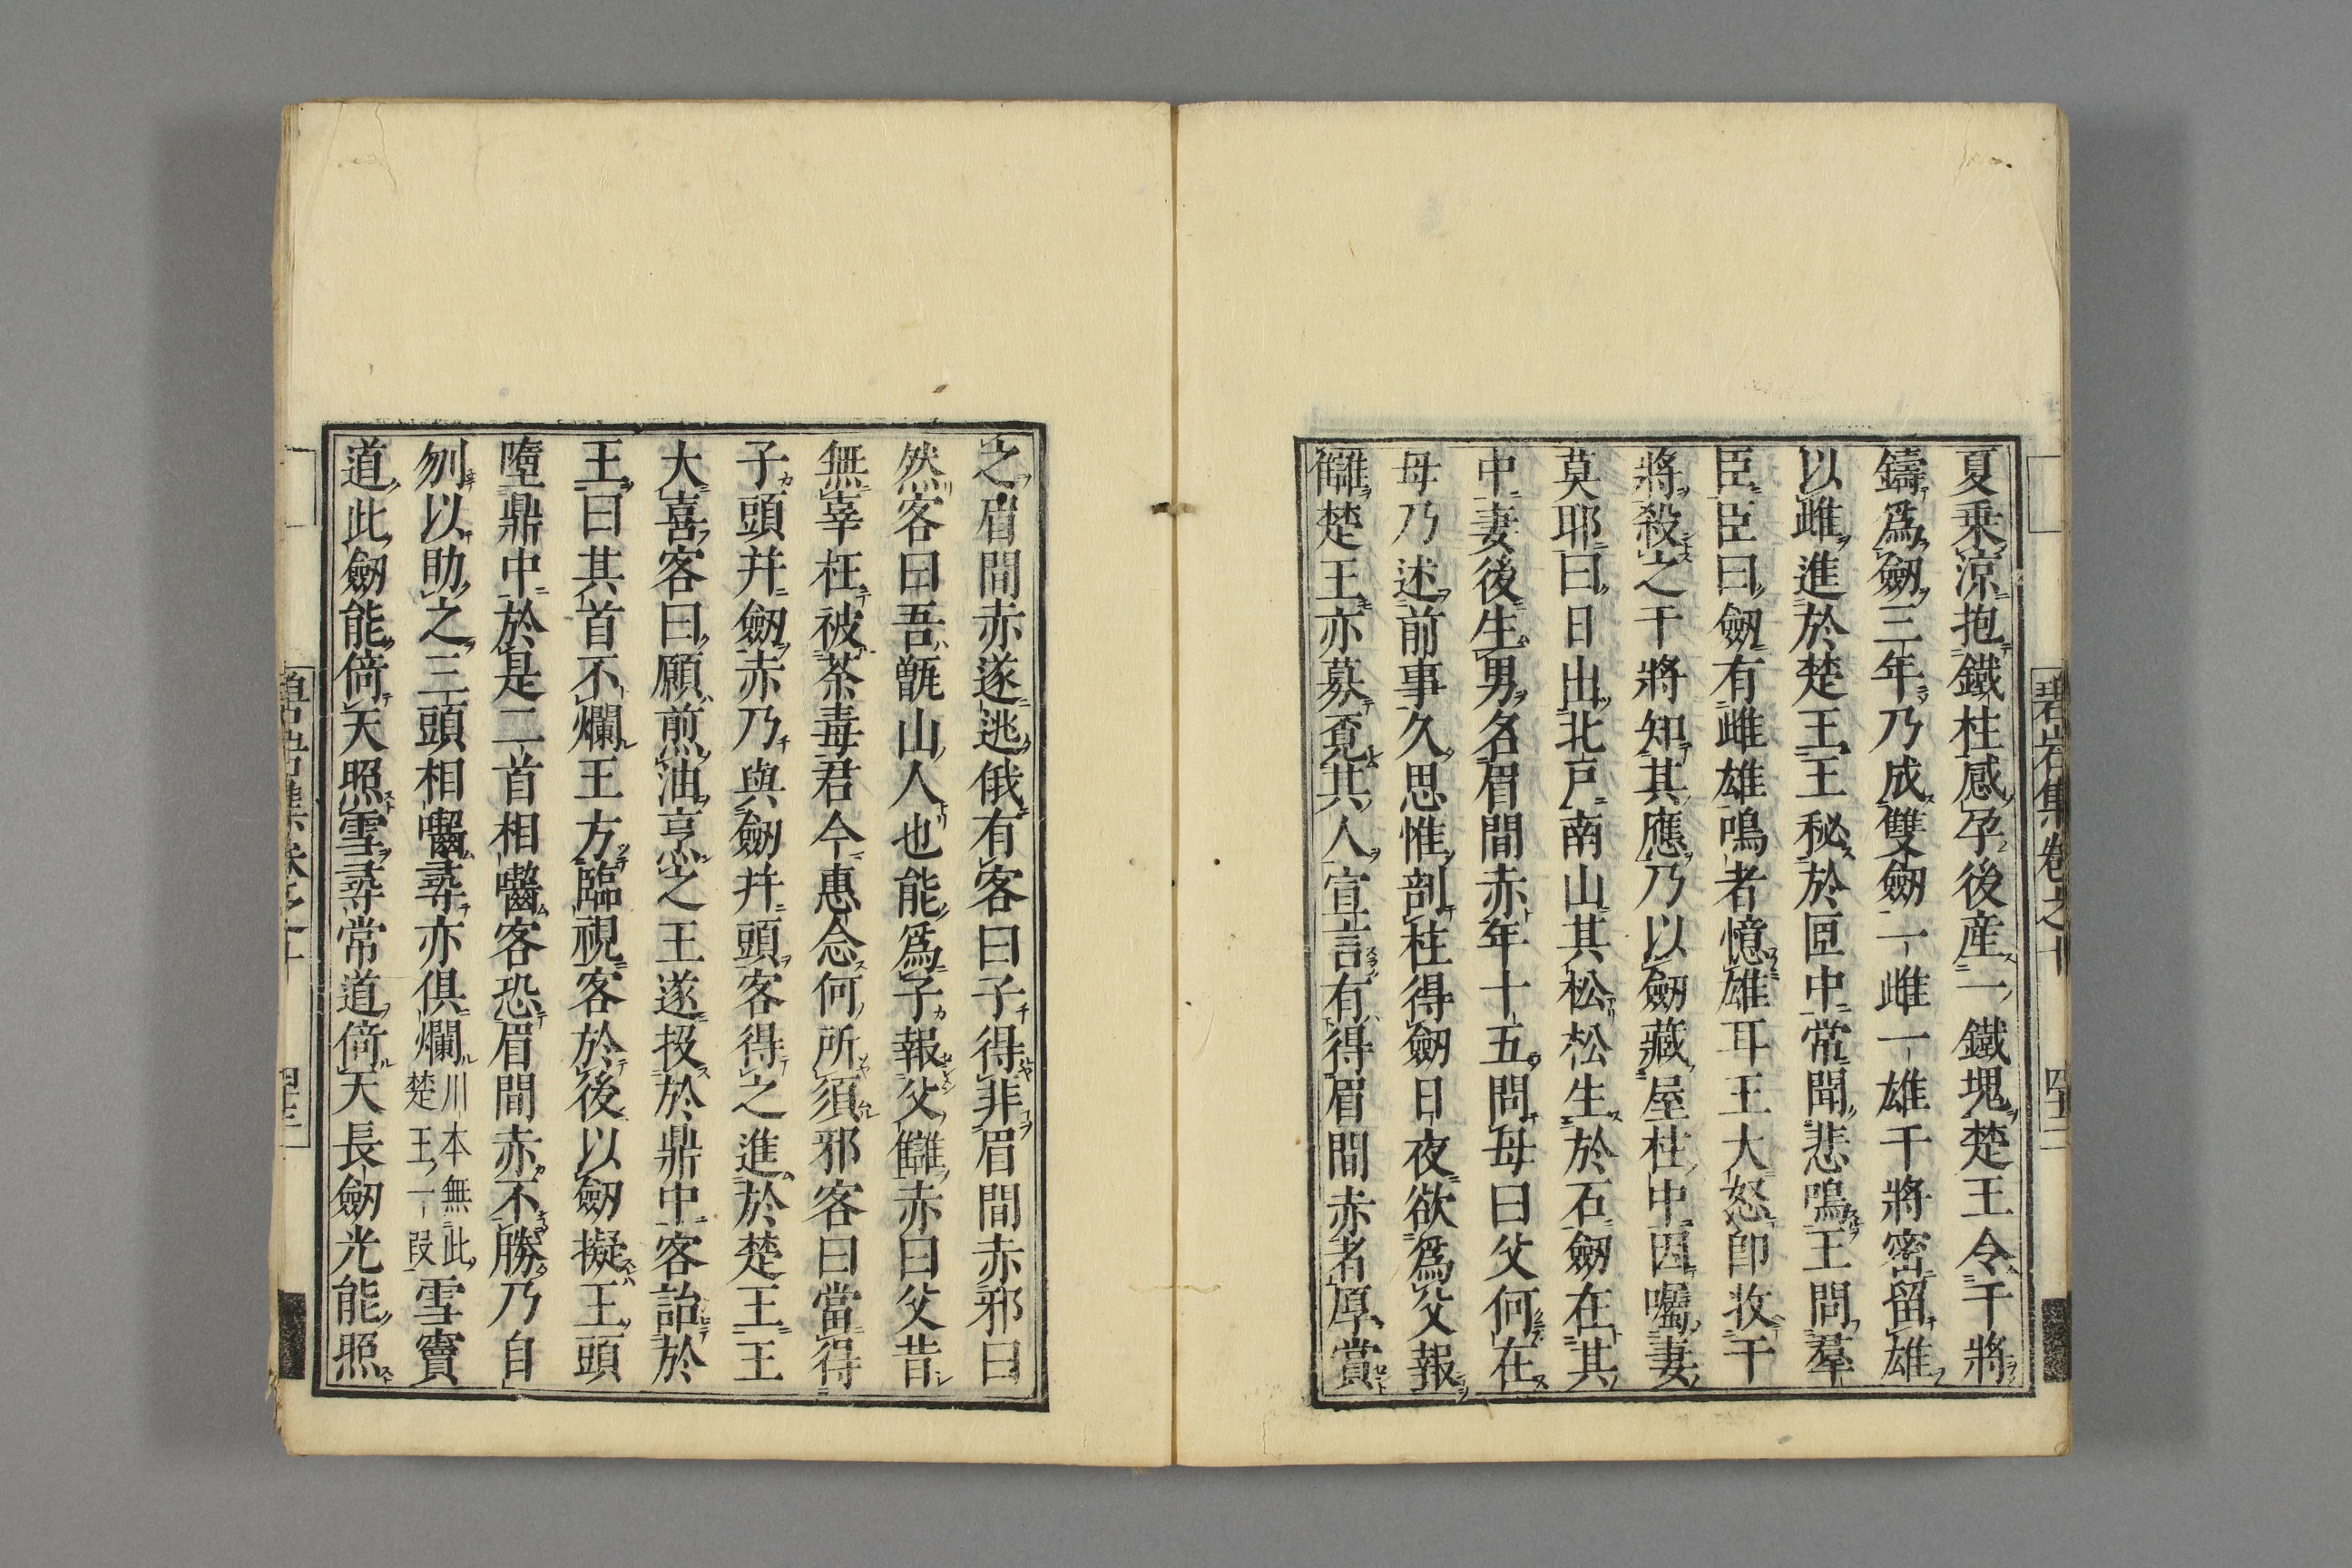 碧岩集卷之十
夏乗涼抱鐵柱感孕後産一鐵塊楚王令干將
鑄爲劔三年乃成雙劔一雌一雄干將密留雄
以雌進於楚王王秘於匣中常聞悲鳴王問羣
臣臣曰劔有雌雄鳴者憶雄耳王大怒卽收干
將殺之干將知其應乃以劔藏屋柱中因囑妻
莫耶曰日出北戸南山其松松生於石劔在其
中妻後生男名眉間赤年十五問母曰父何在
母乃述前事久思惟剖柱得劔日夜欲爲父報
讎楚王亦募覓其人宣言有得眉間赤者厚賞
之眉間赤遂逃俄有客曰子得非眉間赤邪曰
然客曰吾甑山人也能爲子報父讎赤曰父昔
無辜枉被荼毒君今惠念何所須邪客曰當得
子頭并劔赤乃與劔并頭客得之進於楚王王
大喜客曰願煎油烹之王遂投於鼎中客詒於
王曰其首不爛王方臨視客於後以劔擬王頭
墮鼎中於是二首相囓客恐眉間赤不勝乃自
刎以助之三頭相囓尋亦俱爛川本無此楚王一段雪竇
道此劔能倚天照雪尋常道倚天長劔光能照